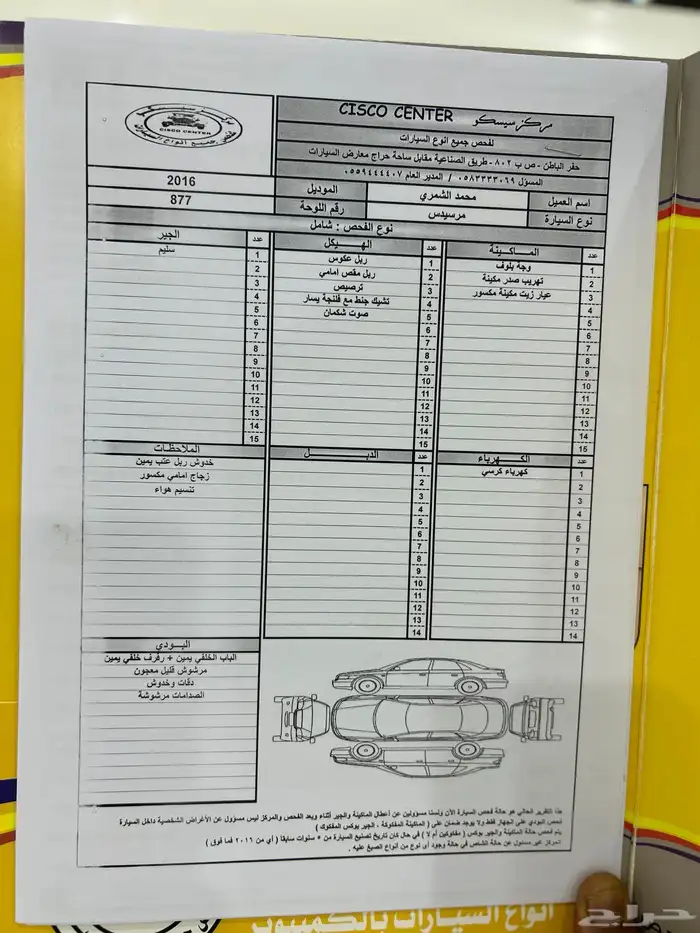 مركز سيسكو CISCO CENTER
لفحص جميع انوع السيارات
حفر الباطن - ص ب ٨٠٢ - طريق الصناعية مقابل ساحة حراج معارض السيارات
المسؤل ٠٥٨٣٣٣٣٠٦٩ / المدير العام ٠٥٥٩٤٤٤٤٠٧
CISCO CENTER
اسم العميل محمد الشمري الموديل 2016
نوع السيارة مرسيدس رقم اللوحة 877
نوع الفحص : شامل
عدد الماكينة
1 وجة بلوف
2 تهريب صدر مكينة
3 عيار زيت مكينة مكسور
4
5
6
7
8
9
10
11
12
13
14
15
عدد الهيكل
1 ربل عكوس
2 ربل مقص امامي
3 ترصيص
4 تشيك جنط مع فلنجة يسار
5 صوت شكمان
6
7
8
9
10
11
12
13
14
15
عدد الجير
1 سليم
2
3
4
5
6
7
8
9
10
11
12
13
14
15
عدد الكهرباء
1 كهرباء كرسي
2
3
4
5
6
7
8
9
10
11
12
13
14
عدد الدبل
1
2
3
4
5
6
7
8
9
10
11
12
13
14
الملاحظات
خدوش ربل عتب يمين
زجاج امامي مكسور
تنسيم هواء
البودي
الباب الخلفي يمين + رفرف خلفي يمين
مرشوش قليل معجون
دقات وخدوش
الصدامات مرشوشة
هذا التقرير الحالي هو حالة فحص السيارة الآن ولسنا مسؤولين عن أعطال الماكينة والجير أثناء وبعد الفحص والمركز ليس مسؤول عن الأغراض الشخصية داخل السيارة
فحص البودي على الجهاز فقط ولا يوجد ضمان على ( الماكينة المفكوكة ، الجير بوكس المفكوك )
يتم فحص حالة الماكينة والجير بوكس ( مفكوكين أم لا ) في حال كان تاريخ تصنيع السيارة من سنوات سابقاً ( أي من ٢٠١٦ فما فوق )
المركز غير مسئول عن حالة الشاص في حالة وجود أي نوع من أنواع الصبغ عليه .
انواع السيارات بالكمبيوتر
حراج